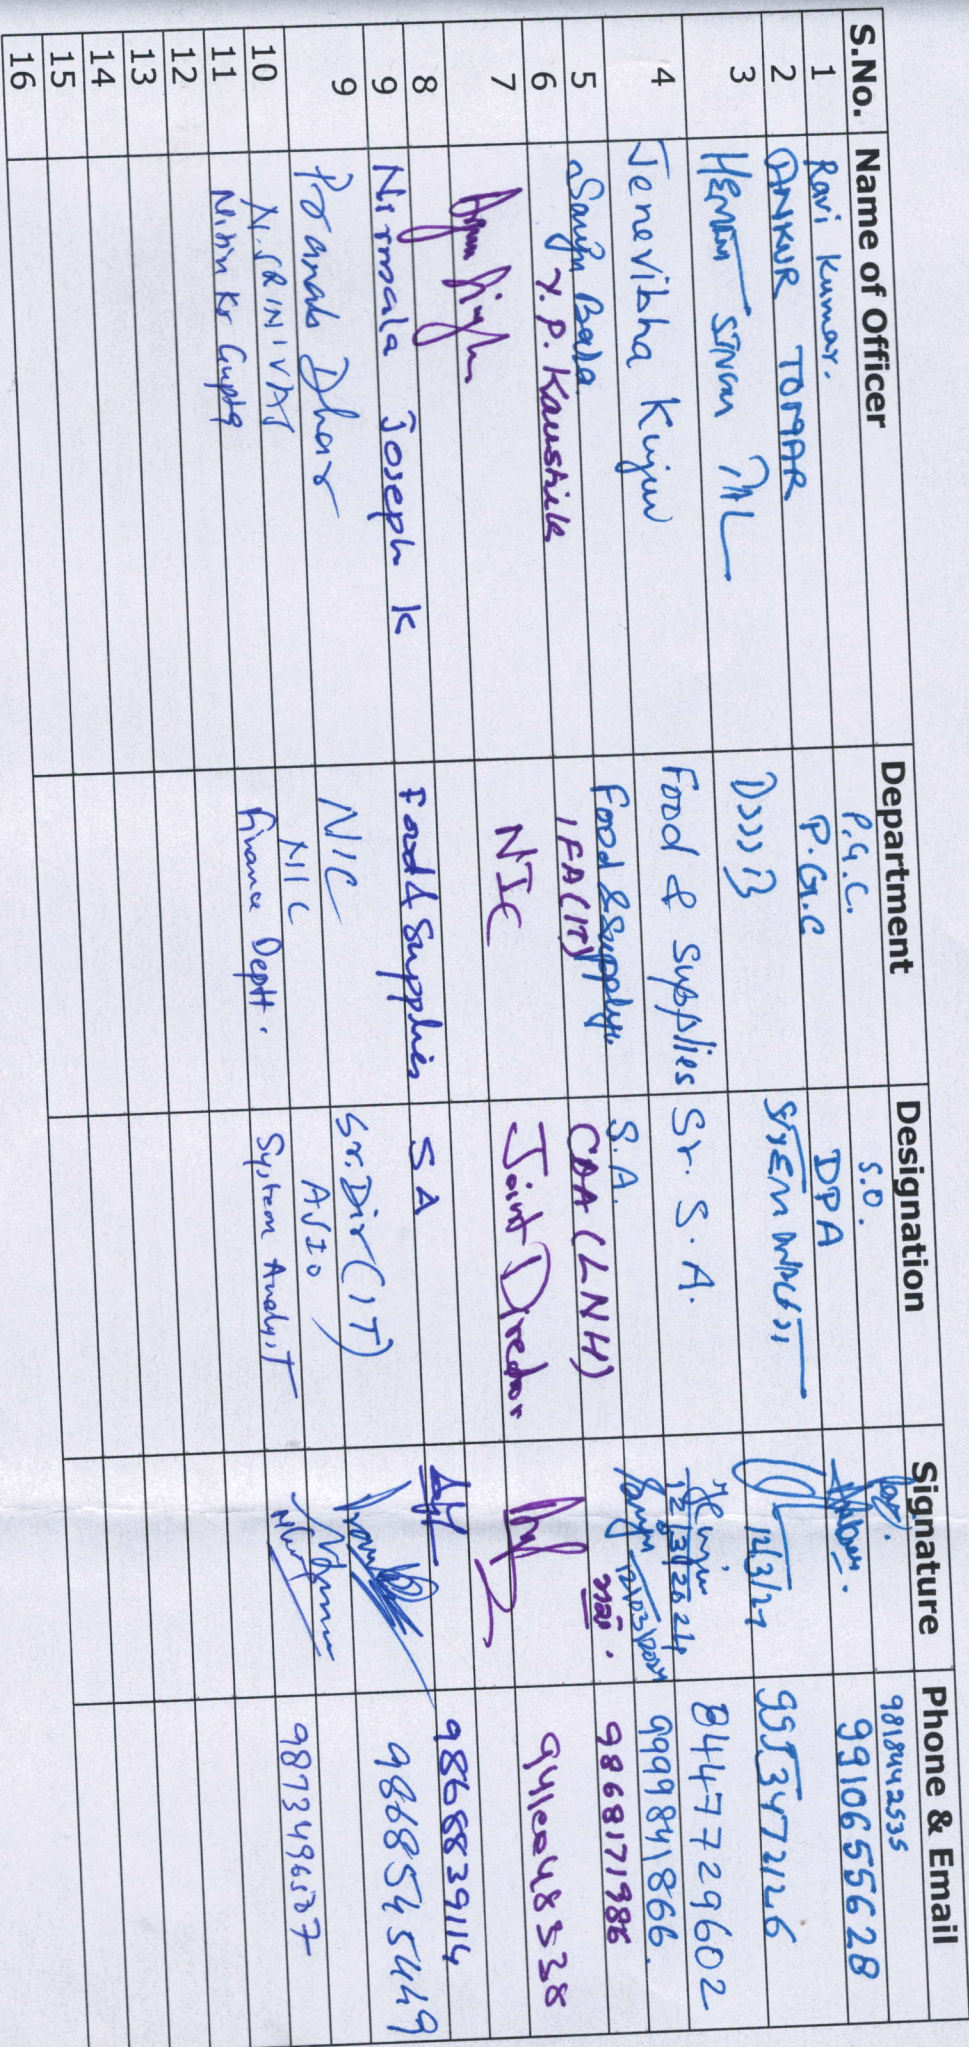 S.No. Name of Officer Department Designation Signature Phone & Email
1 Ravi Kumar. P.G.C. S.O. 9818442535
2 ANKUR TOMAR P.G.C DPA 9910655628
3 HEMANT SINGH PAL SYSTEM 12/3/24 9953472126
4 Jenevibha Kujur Food & Supplies Sr. S.A. 12/3/2024 8447729602
5 Sanju Bala Food & Supply S.A. Sanju 12/03/2024 9999841866.
6 Y.P. Kaushik IFA(IT) CDA (LNH) 9868171986
7 Arjun Singh NIC Joint Director
8
9 Nirmala Joseph K Food & Supplies SA 9868839114
9 Pranab Dhar NIC Sr. Dir (IT) 9868545449
10 N. SRINIVAS NIC ASIO
11 Nitin Kr Gupta Finance Deptt. System Analyst
12
13
14
15
16